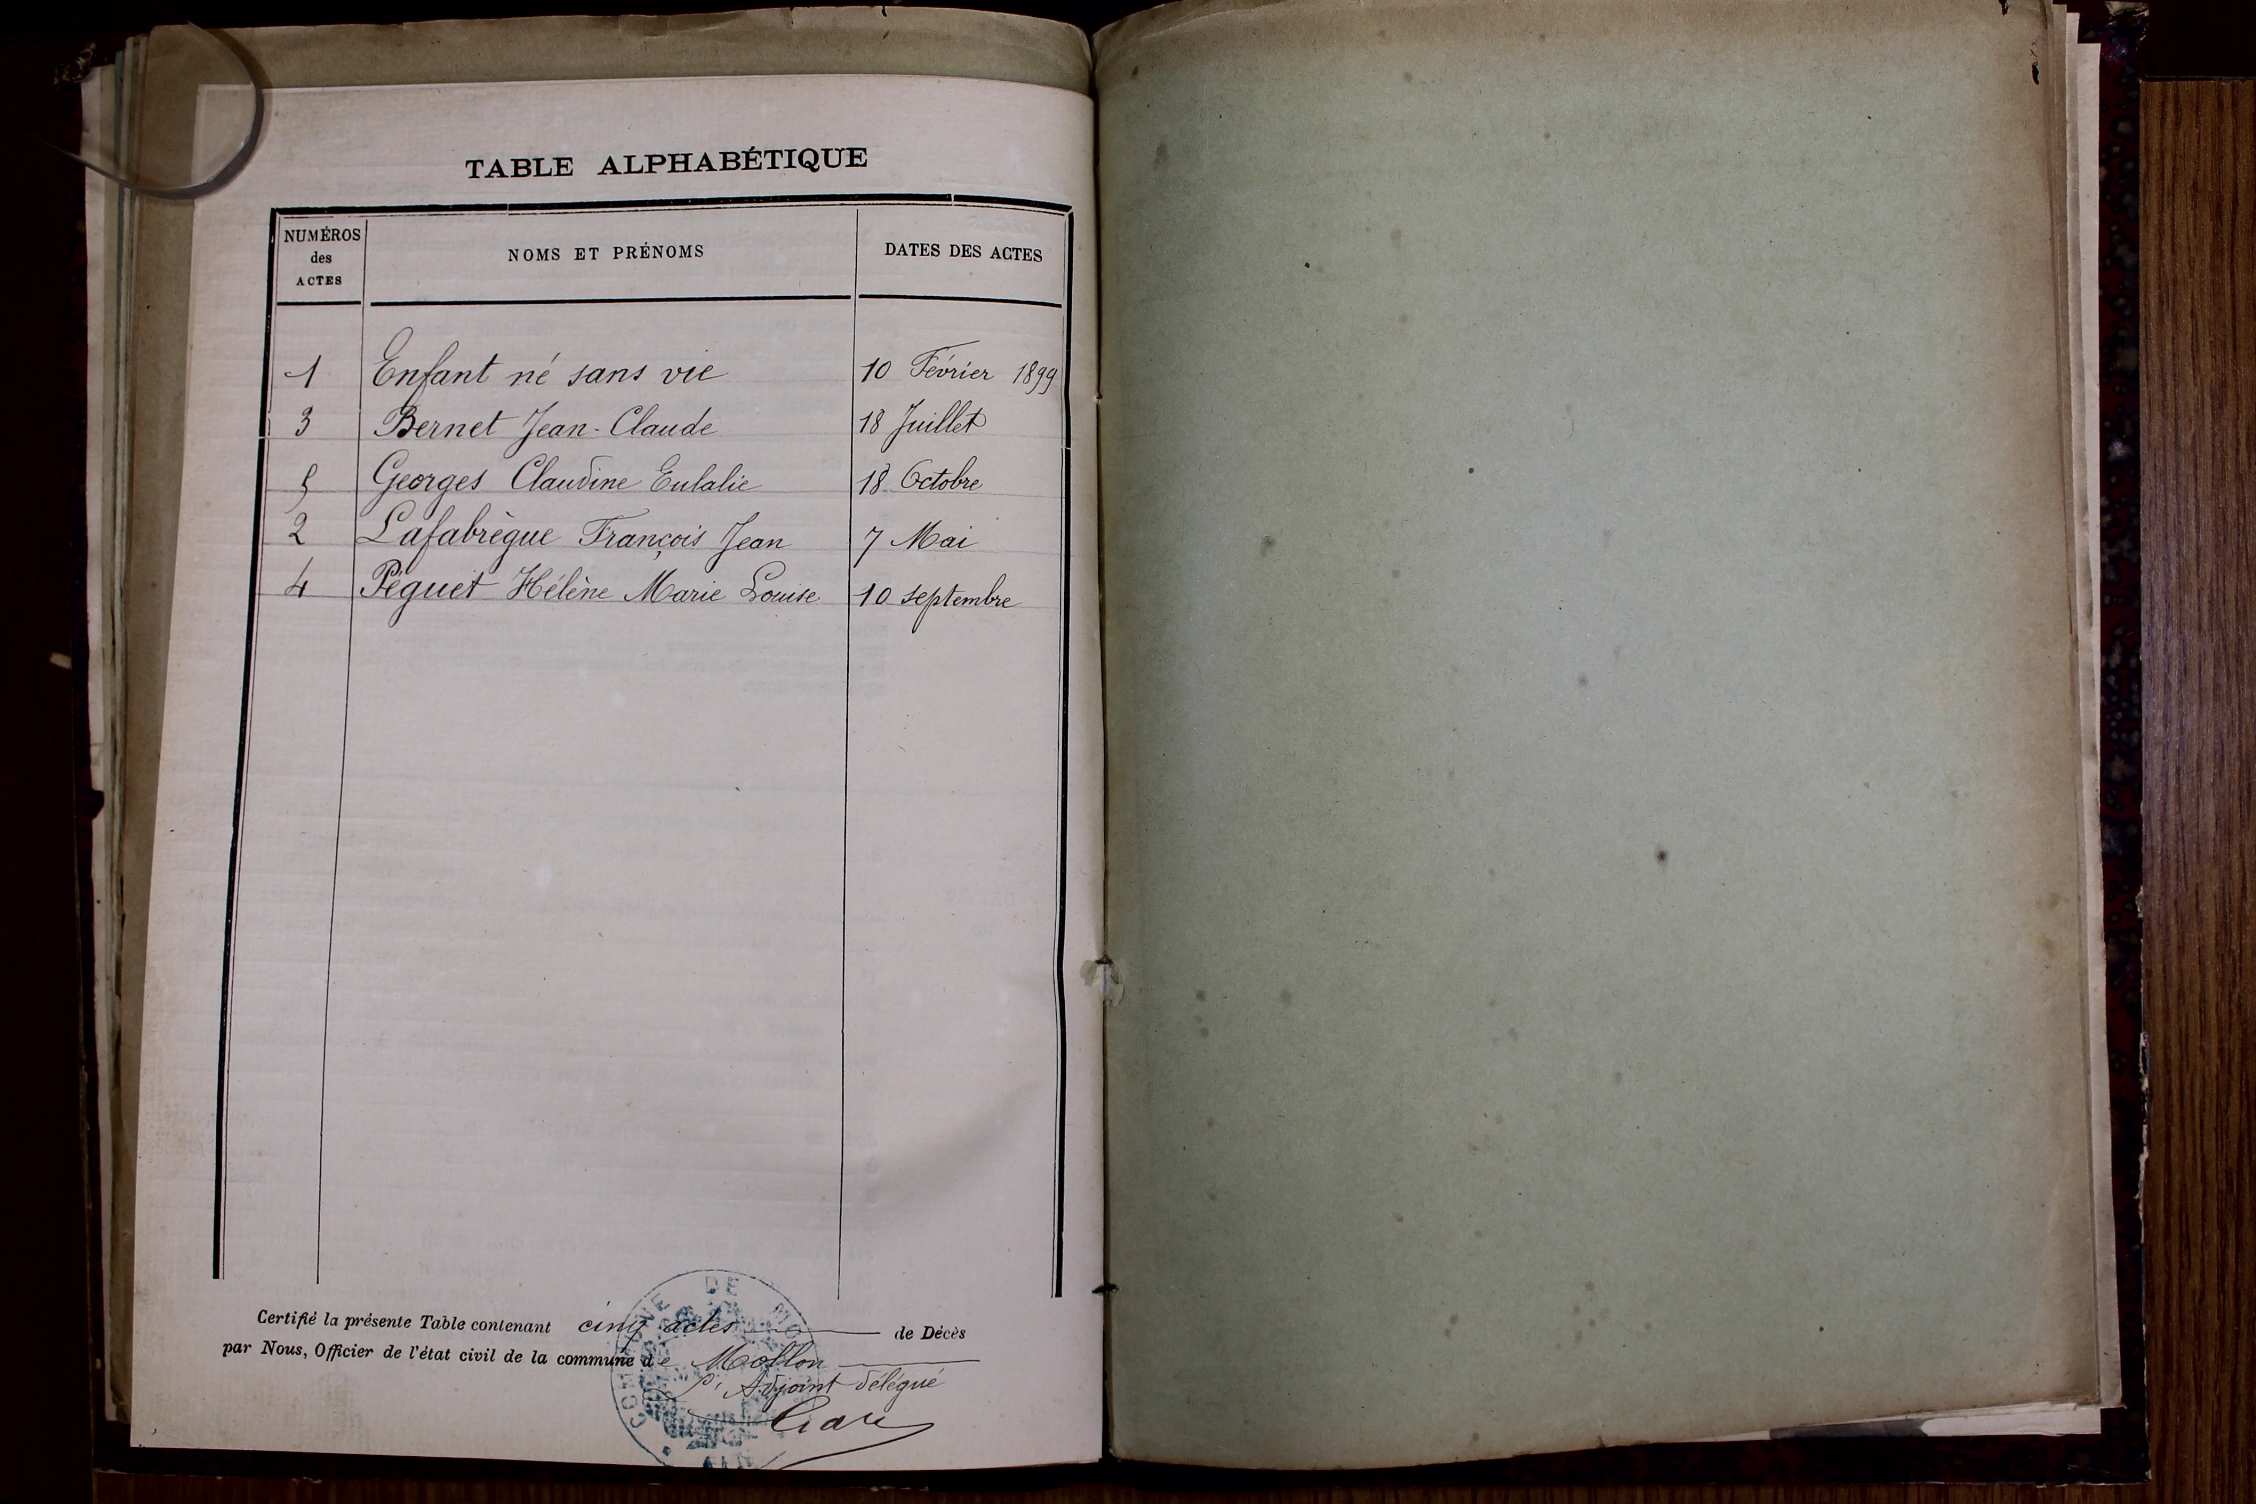 TABLE ALPHABÉTIQUE
NUMÉROS des ACTES NOMS ET PRÉNOMS DATES DES ACTES
1 Enfant né sans vie 10 Février 1899
3 Bernet Jean-Claude 18 Juillet
5 Georges Claudine Eulalie 18 Octobre
2 Lafabrègue François Jean 7 Mai
4 Péguet Hélène Marie Louise 10 septembre
Certifié la présente Table contenant cinq actes de Décès
par Nous, Officier de l'état civil de la commune de Mollon
L'Adjoint délégué
COMMUNE DE MO
AIN